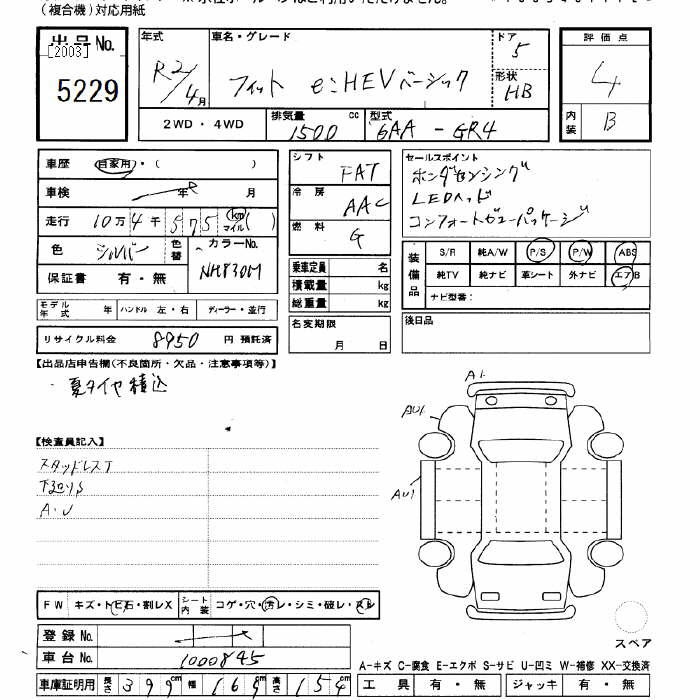 (複合機)対応用紙
出品No.
[2003]
5229
年式 R2/4月
車名・グレード
フィット e:HEVベーシック
ドア 5
形状 HB
評価点
4
内装 B
2WD・4WD
排気量 1500 cc
型式 6AA - GR4
車歴 自家用・( )
車検 年 月
走行 10万4千575 km マイル( )
色 シルバー 色替 カラーNo. NH830M
保証書 有・無
モデル年式 年 ハンドル 左・右 ディーラー・並行
リサイクル料金 8950 円 預託済
シフト FAT
冷房 AAC
燃料 G
乗車定員 名
積載量 kg
総重量 kg
名変期限
月 日
セールスポイント
ホンダセンシング
LEDヘッド
コンフォートビューパッケージ
装備品
S/R 純A/W P/S P/W ABS
純TV 純ナビ 革シート 外ナビ エアB
ナビ型番:
後日品
【出品店申告欄(不良箇所・欠品・注意事項等)】
・夏タイヤ積込
【検査員記入】
スタッドレスT
下廻りS
A・U
A1
AU1
AU1
FW キズ・トビ石・割レX シート内装 コゲ・穴・汚レ・シミ・破レ・スレ
登録No.
車台No. 1000845
車庫証明用 長さ 399cm 幅 169cm 高さ 154cm
スペア
A-キズ C-腐食 E-エクボ S-サビ U-凹ミ W-補修 XX-交換済
工具 有・無 ジャッキ 有・無